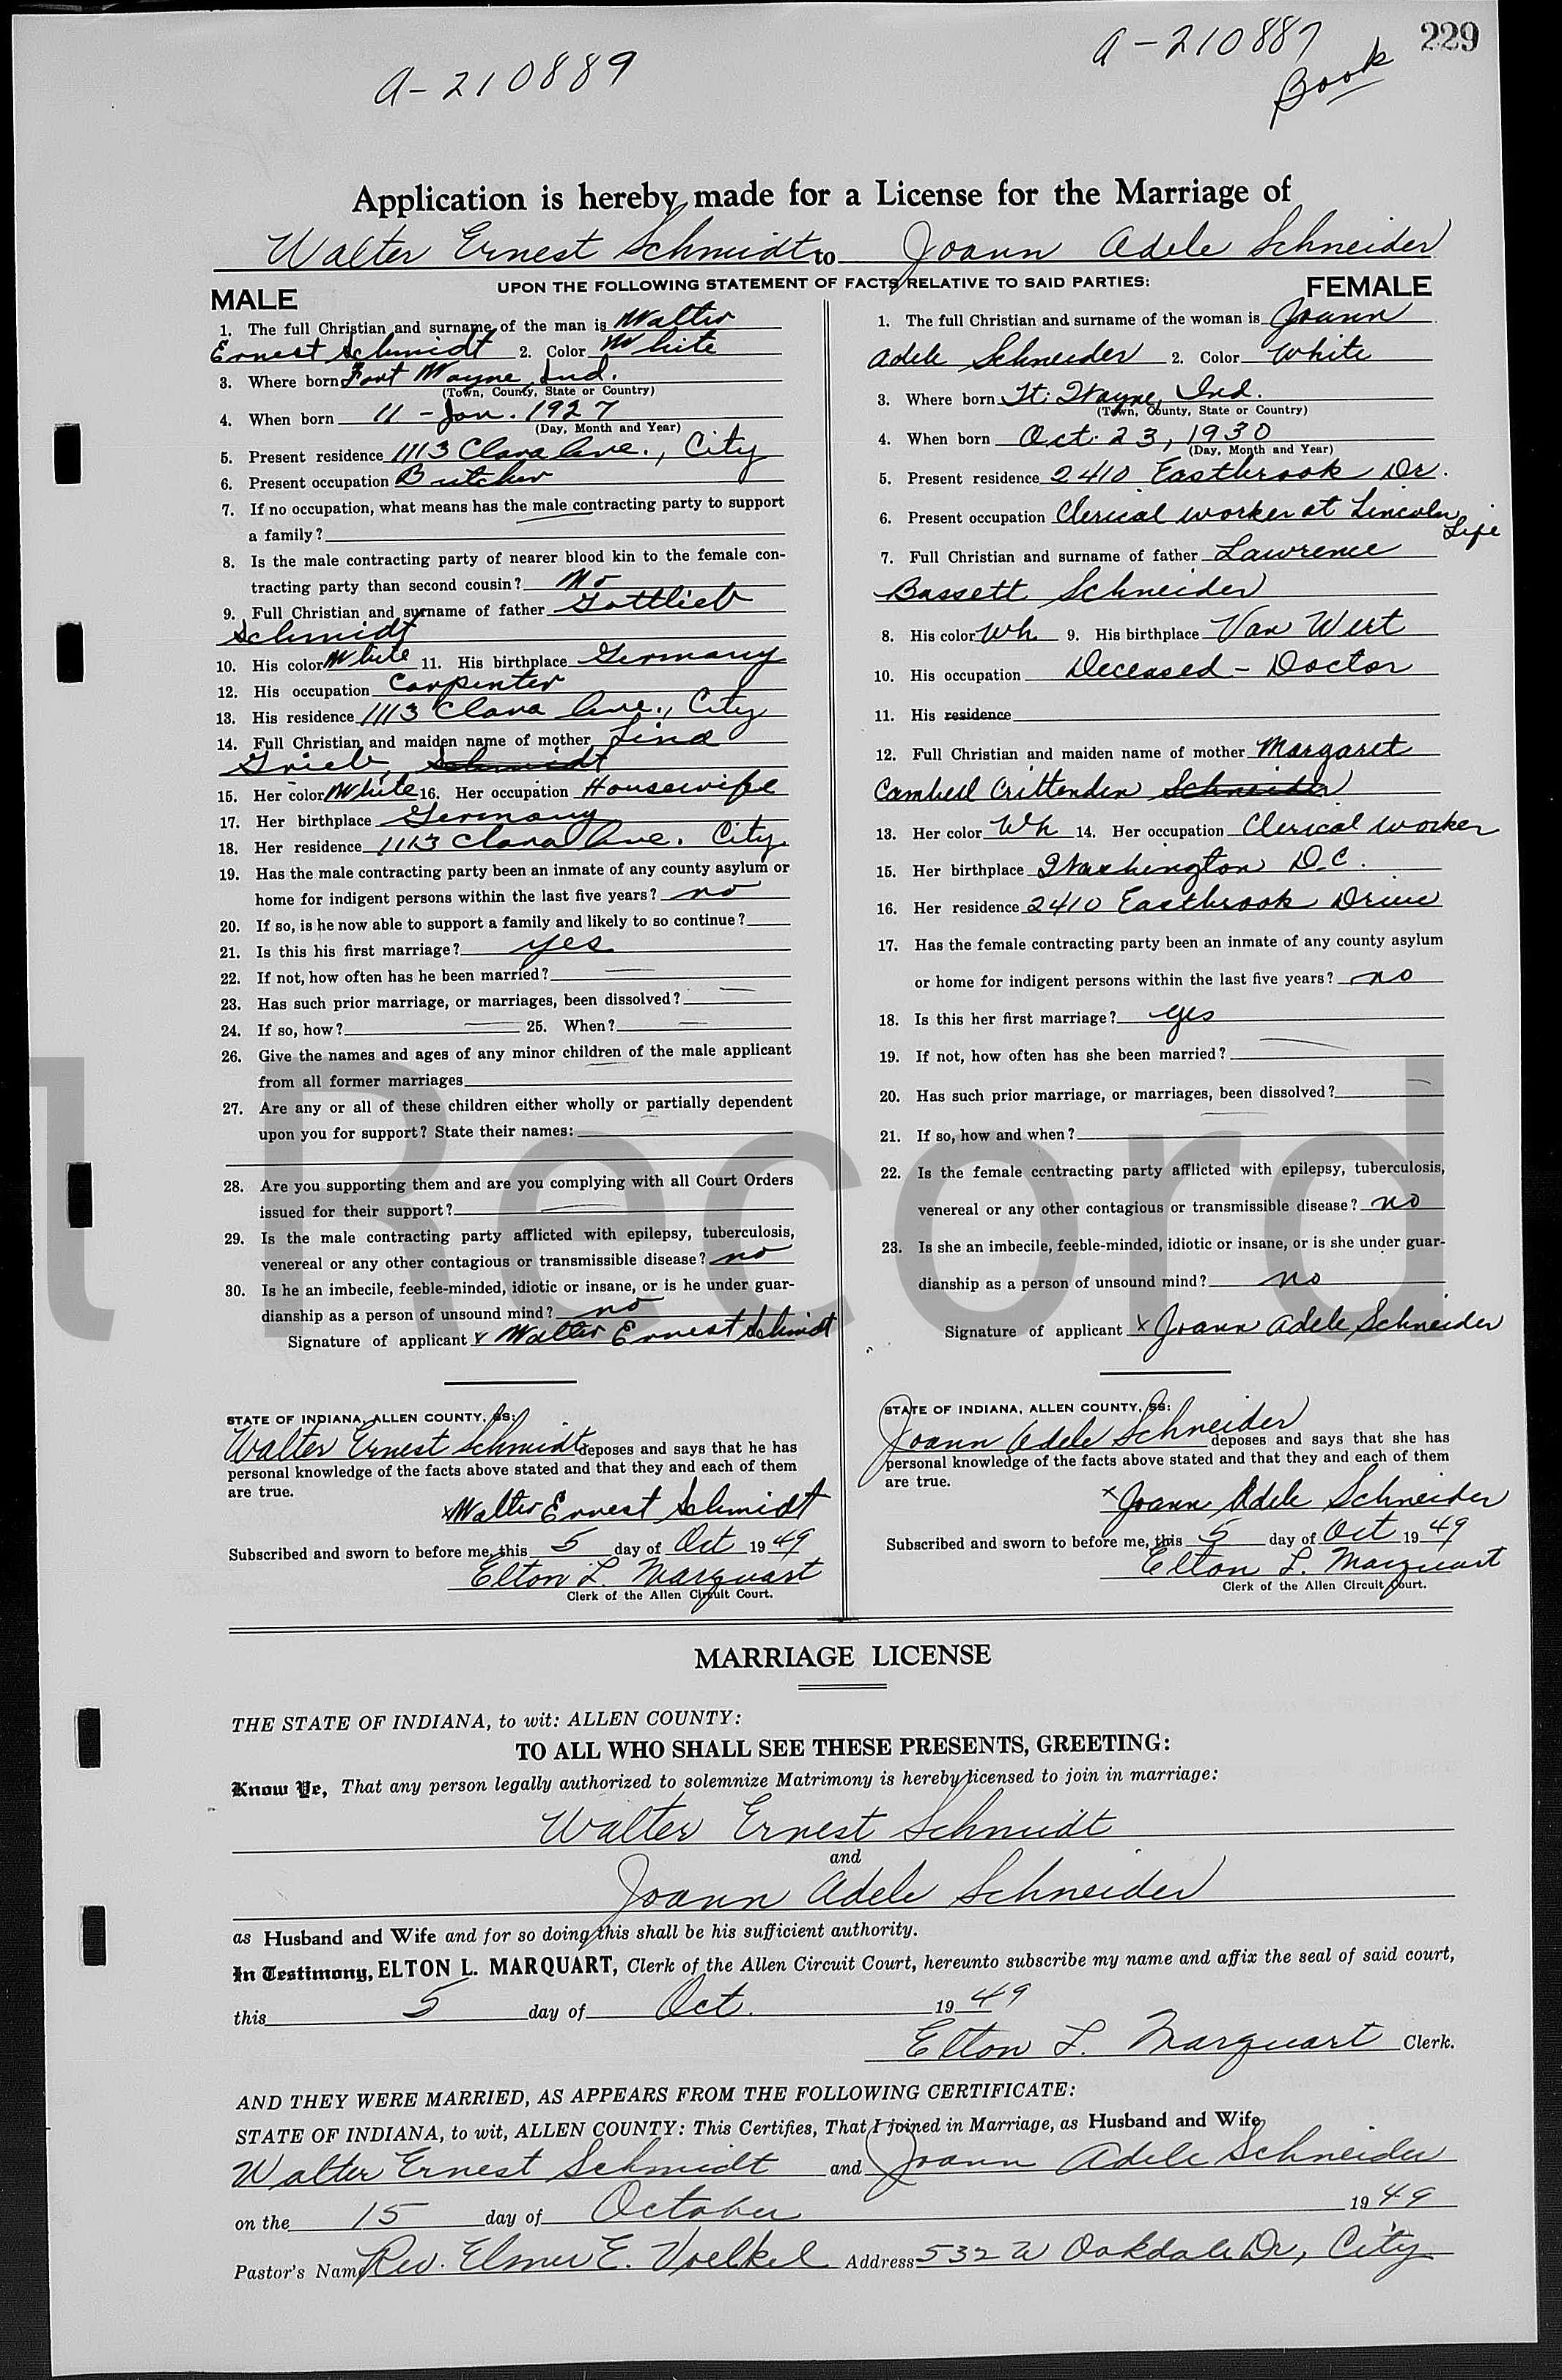 229
A-210889
A-210887
Book
Application is hereby made for a License for the Marriage of
Walter Ernest Schmidt to Joann Adele Schneider
UPON THE FOLLOWING STATEMENT OF FACTS RELATIVE TO SAID PARTIES:
MALE
1. The full Christian and surname of the man is Walter
Ernest Schmidt 2. Color White
3. Where born Fort Wayne, Ind.
(Town, County, State or Country)
4. When born 11 - Jan. 1927
(Day, Month and Year)
5. Present residence 1113 Clara Ave., City
6. Present occupation Butcher
7. If no occupation, what means has the male contracting party to support
a family?
8. Is the male contracting party of nearer blood kin to the female con-
tracting party than second cousin? No
9. Full Christian and surname of father Gottlieb
Schmidt
10. His color White 11. His birthplace Germany
12. His occupation Carpenter
13. His residence 1113 Clara Ave., City
14. Full Christian and maiden name of mother Lina
Grieb, Schmidt
15. Her color White 16. Her occupation Housewife
17. Her birthplace Germany
18. Her residence 1113 Clara Ave. City
19. Has the male contracting party been an inmate of any county asylum or
home for indigent persons within the last five years? no
20. If so, is he now able to support a family and likely to so continue?
21. Is this his first marriage? yes
22. If not, how often has he been married?
23. Has such prior marriage, or marriages, been dissolved?
24. If so, how? 25. When?
26. Give the names and ages of any minor children of the male applicant
from all former marriages
27. Are any or all of these children either wholly or partially dependent
upon you for support? State their names:
28. Are you supporting them and are you complying with all Court Orders
issued for their support?
29. Is the male contracting party afflicted with epilepsy, tuberculosis,
venereal or any other contagious or transmissible disease? no
30. Is he an imbecile, feeble-minded, idiotic or insane, or is he under guar-
dianship as a person of unsound mind? no
Signature of applicant x Walter Ernest Schmidt
STATE OF INDIANA, ALLEN COUNTY, SS:
Walter Ernest Schmidt deposes and says that he has
personal knowledge of the facts above stated and that they and each of them
are true.
x Walter Ernest Schmidt
Subscribed and sworn to before me, this 5 day of Oct 1949
Elton L. Marquart
Clerk of the Allen Circuit Court.
FEMALE
1. The full Christian and surname of the woman is Joann
Adele Schneider 2. Color White
3. Where born Ft. Wayne, Ind.
(Town, County, State or Country)
4. When born Oct. 23, 1930
(Day, Month and Year)
5. Present residence 2410 Eastbrook Dr.
6. Present occupation Clerical worker at Lincoln
Life
7. Full Christian and surname of father Lawrence
Bassett Schneider
8. His color Wh 9. His birthplace Van Wert
10. His occupation Deceased - Doctor
11. His residence
12. Full Christian and maiden name of mother Margaret
Cambell Crittenden Schneider
13. Her color Wh 14. Her occupation Clerical worker
15. Her birthplace Washington D.C.
16. Her residence 2410 Eastbrook Drive
17. Has the female contracting party been an inmate of any county asylum
or home for indigent persons within the last five years? no
18. Is this her first marriage? yes
19. If not, how often has she been married?
20. Has such prior marriage, or marriages, been dissolved?
21. If so, how and when?
22. Is the female contracting party afflicted with epilepsy, tuberculosis,
venereal or any other contagious or transmissible disease? no
23. Is she an imbecile, feeble-minded, idiotic or insane, or is she under guar-
dianship as a person of unsound mind? no
Signature of applicant x Joann Adele Schneider
STATE OF INDIANA, ALLEN COUNTY, SS:
Joann Adele Schneider deposes and says that she has
personal knowledge of the facts above stated and that they and each of them
are true.
x Joann Adele Schneider
Subscribed and sworn to before me, this 5 day of Oct 1949
Elton L. Marquart
Clerk of the Allen Circuit Court.
l Record
MARRIAGE LICENSE
THE STATE OF INDIANA, to wit: ALLEN COUNTY:
TO ALL WHO SHALL SEE THESE PRESENTS, GREETING:
Know Ye, That any person legally authorized to solemnize Matrimony is hereby licensed to join in marriage:
Walter Ernest Schmidt
and
Joann Adele Schneider
as Husband and Wife and for so doing this shall be his sufficient authority.
In Testimony, ELTON L. MARQUART, Clerk of the Allen Circuit Court, hereunto subscribe my name and affix the seal of said court,
this 5 day of Oct. 1949
Elton L. Marquart Clerk.
AND THEY WERE MARRIED, AS APPEARS FROM THE FOLLOWING CERTIFICATE:
STATE OF INDIANA, to wit, ALLEN COUNTY: This Certifies, That I joined in Marriage, as Husband and Wife
Walter Ernest Schmidt and Joann Adele Schneider
on the 15 day of October 1949
Pastor's Name Rev. Elmer E. Voelkel Address 532 W Oakdale Dr, City